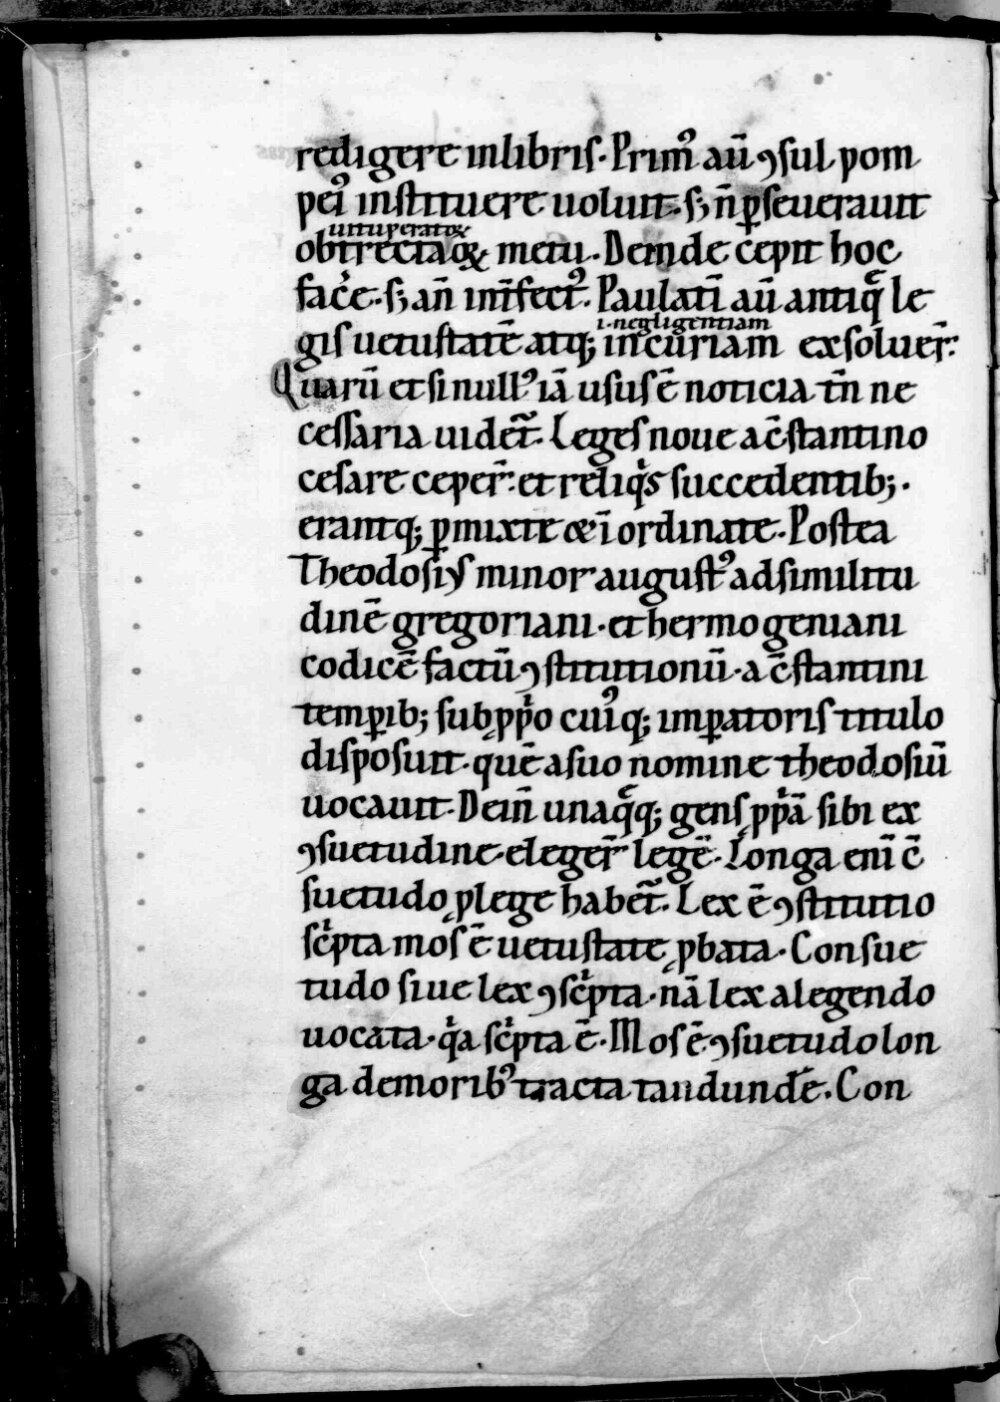 redigere inlibris. Primꝰ aū ꝯsul pom
peiꝰ instituere uoluit. sꝫ n̄ ꝑseuerauit
uituperatoꝝ
obtrectatoꝝ metu. Deinde cepit hoc
facͥe. sꝫ an̄ int̄fectꝰ. Paulatī aū antiqͣ le
.i. negligentiam
gis uetustatē atqꝫ incuriam exsoluer̄.
Quarū et si nullꝰ iā usus ē noticia tn̄ ne
cessaria uidet᷑. Leges noue a c̄stantino
cesare ceper̄. et reliqͥs succedentibꝫ.
erantqꝫ ꝑmixte & īordinate. Postea
Theodosiꝰ minor augustꝰ ad similitu
dinē gregoriani. et hermogeniani
codicē factū ꝯstitutionū. a c̄stantini
temꝑibꝫ sub ꝓpͥo cuiꝰqꝫ imꝑatoris titulo
disposuit. quē a suo nomine theodosiū
uocauit. Dein̄ unaqͣqꝫ gens ꝓpͥā sibi ex
ꝯsuetudine eleger̄ legē. Longa enī c̄
suetudo ꝓ lege habet᷑. Lex ē ꝯstitutio
scͥpta mos ē uetustate ꝓbata. Consue
tudo siue lex ꝯscͥpta. nā lex a legendo
uocata. qͥa scͥpta ē. Mos ē ꝯsuetudo lon
ga de moribꝰ tracta tandundē. Con